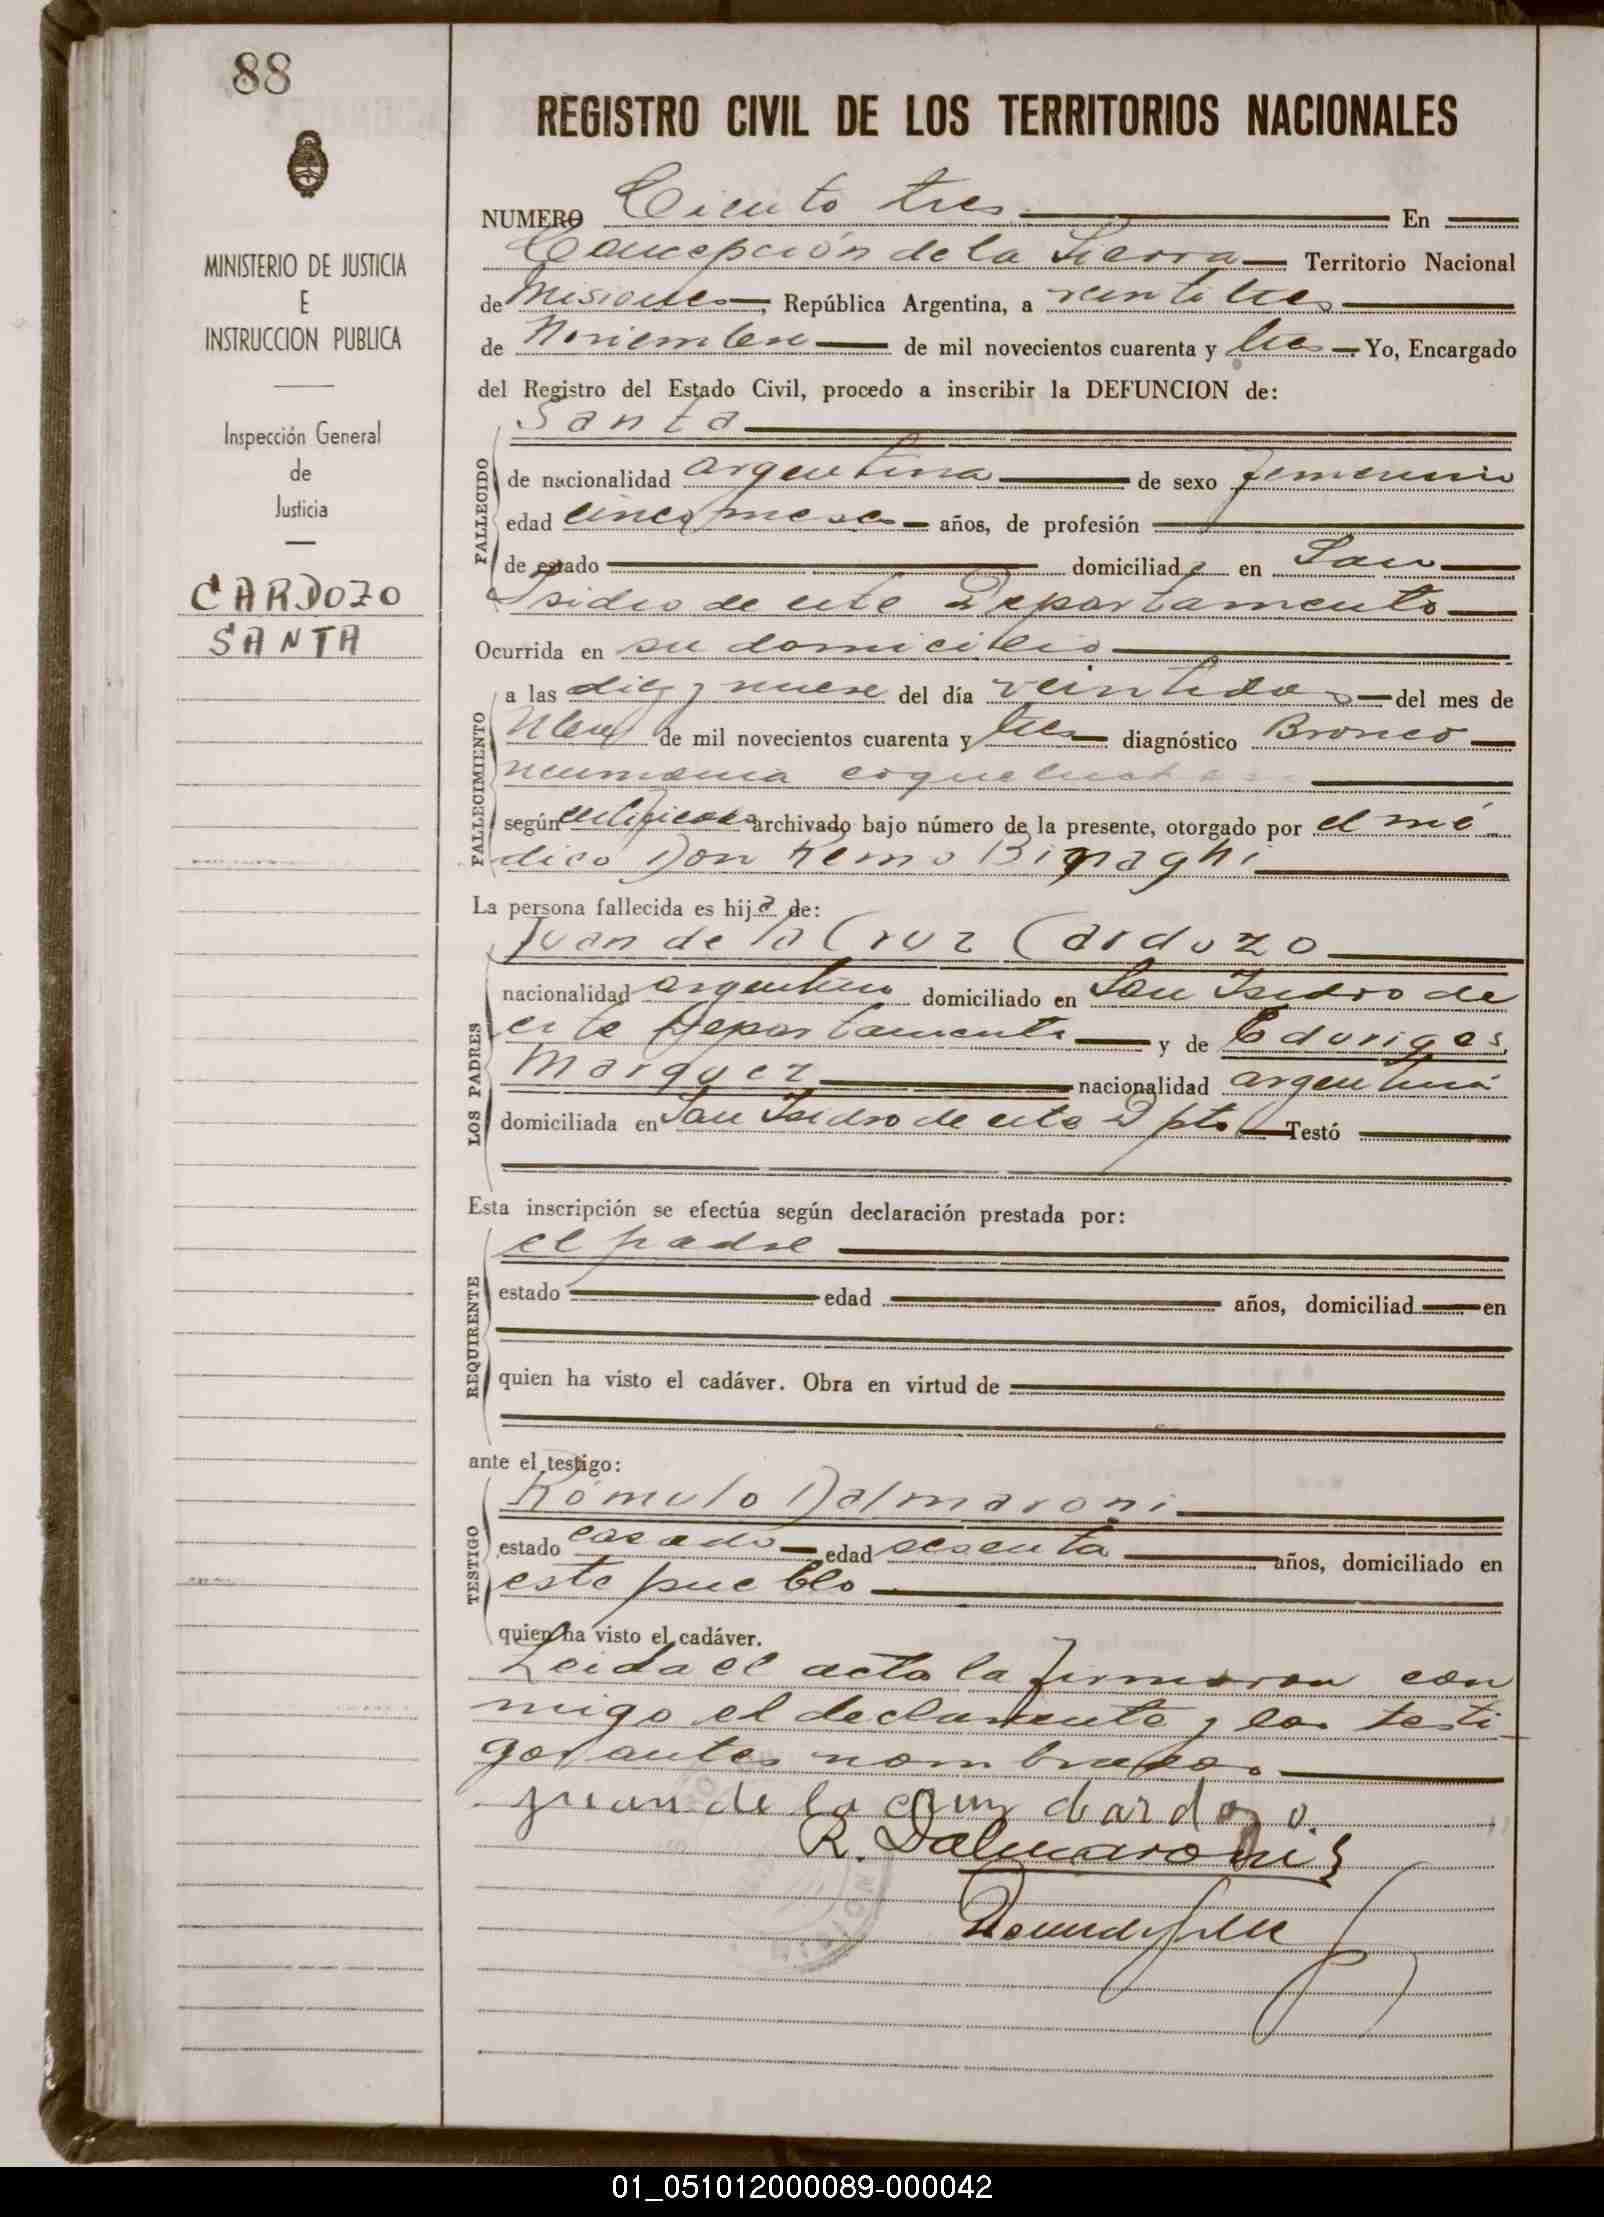 88
MINISTERIO DE JUSTICIA
E
INSTRUCCION PUBLICA
Inspección General
de
Justicia
CARDOZO
SANTA
REGISTRO CIVIL DE LOS TERRITORIOS NACIONALES
NUMERO Ciento tres En
Concepción de la Sierra Territorio Nacional
de Misiones, República Argentina, a veintitres
de Noviembre de mil novecientos cuarenta y tres. Yo, Encargado
del Registro del Estado Civil, procedo a inscribir la DEFUNCION de:
FALLECIDO
Santa
de nacionalidad argentina de sexo femenino
edad cinco meses años, de profesión
de estado domiciliad en San
Isidro de este Departamento
Ocurrida en su domicilio
FALLECIMIENTO
a las diez y nueve del día veintidos del mes de
de mil novecientos cuarenta y tres diagnóstico Bronco
neumonia
según certificado archivado bajo número de la presente, otorgado por el mé
dico Don Remo Binaghi
La persona fallecida es hija de:
LOS PADRES
Juan de la Cruz Cardozo
nacionalidad argentino domiciliado en San Isidro de
este Departamento y de Eduriges
Marquez nacionalidad argentina
domiciliada en San Isidro de este Dpto Testó
Esta inscripción se efectúa según declaración prestada por:
REQUIRENTE
el padre
estado edad años, domiciliad en
quien ha visto el cadáver. Obra en virtud de
ante el testigo:
TESTIGO
Rómulo Dalmaroni
estado casado edad sesenta años, domiciliado en
este pueblo
quien ha visto el cadáver.
Leida el acta la firmaron con
migo el declarante y los testi
gos antes nombrados.
Juan de la Cruz Cardozo.
R. Dalmaroni
01_051012000089-000042